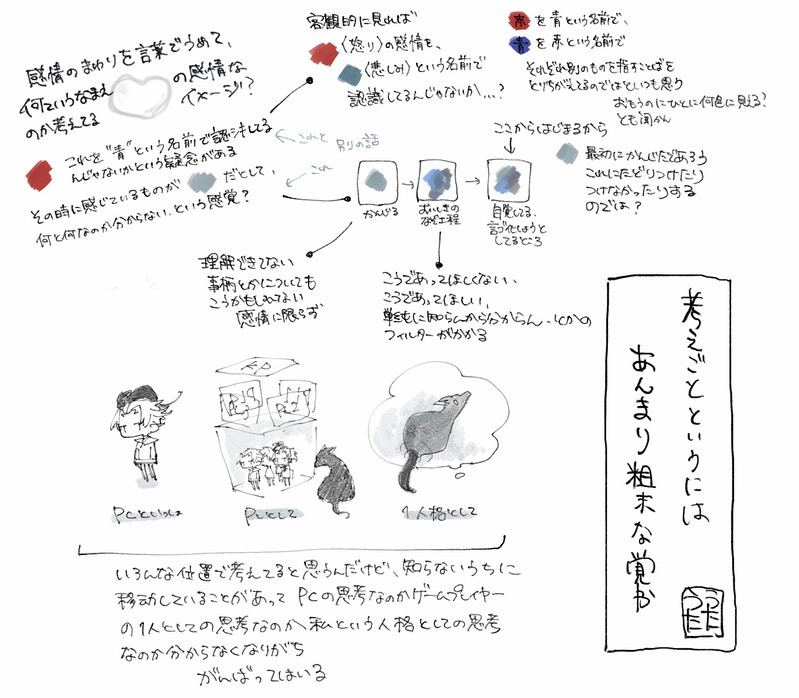 感情のまわりを言葉でうめて、
何ていうなまえ の感情な
のか考えてる イメージ?
客観的に見れば
〈怒り〉の感情を、
〈悲しみ〉という名前で
認識してるんじゃないか…?
赤を青という名前で、
青を赤という名前で
それぞれ別のものを指すことばを
とりちがえてるのではといつも思う
おもうのにひとに何色に見える?
とも聞かん
これを"青"という名前で認シキしてる
んじゃないかという疑念がある
これと 別の話
その時に感じているものが だとして、
これ
何と何なのか分からない、という感覚?
ここからはじまるから
最初にかんじたであろう
これにたどりつけたり
つけなかったりする
のでは?
かんじる
むいしきの
なぞ工程
自覚してる、
言ゴ化しようと
してるところ
理解できてない
事柄とかについても
こうかもしれない
感情に限らず
こうであってほしくない、
こうであってほしい、
単純に知らんから分からん、とかの
フィルターがかかる
KP
PL1
PL2
PCといっしょ
PLとして
1人格として
いろんな位置で考えてると思うんだけど、知らないうちに
移動していることがあって PCの思考なのかゲームプレイヤー
の1人としての思考なのか、私という人格としての思考
なのか分からなくなりがち
がんばってはいる
考えごとというには
あんまり粗末な覚が